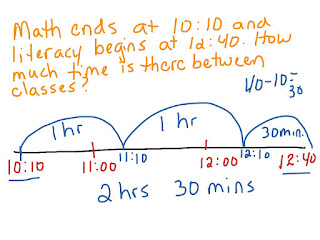 Math ends at 10:10 and
literacy begins at 12:40. How
much time is there between
classes?
40-10=
30
1 hr 1 hr 30 min.
10:10 11:00 11:10 12:00 12:10 12:40
2 hrs 30 mins